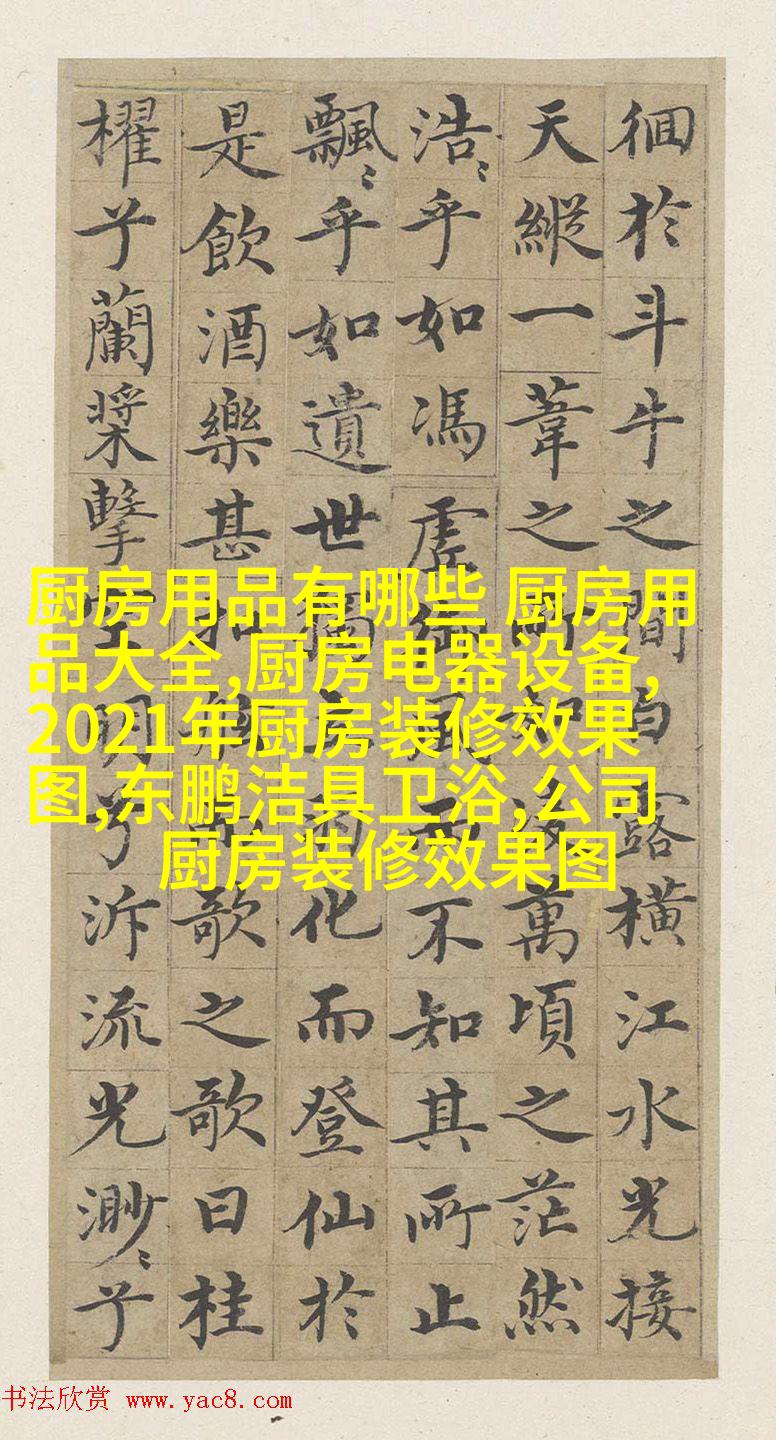 徊於斗牛之間白露橫江水光接
天縱一葦之所如凌萬頃之茫然
浩〻乎如馮虛御風而不知其所止
飄〻乎如遺世獨立羽化而登仙於
是飲酒樂甚扣舷而歌之歌曰桂
櫂兮蘭槳擊空明兮泝流光渺〻兮
厨房用品有哪些 厨房用
品大全,厨房电器设备,
2021年厨房装修效果
图,东鹏洁具卫浴,公司
厨房装修效果图
书法欣赏 www.yac8.com